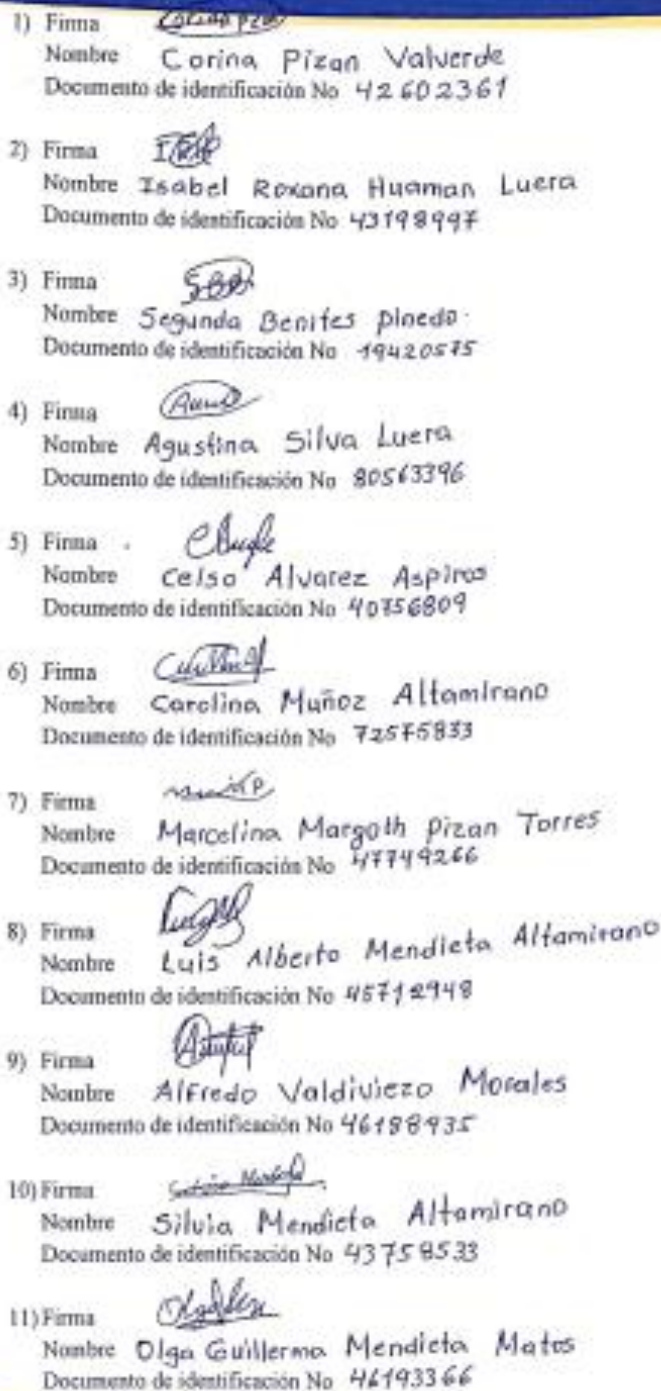 1) Firma
Nombre Corina Pizan Valverde
Documento de identificación No 42602361
2) Firma
Nombre Isabel Roxana Huaman Luera
Documento de identificación No 43198997
3) Firma
Nombre Segunda Benites pinedo.
Documento de identificación No 19420575
4) Firma
Nombre Agustina Silva Luera
Documento de identificación No 80563396
5) Firma
Nombre Celso Alvarez Aspiros
Documento de identificación No 40756809
6) Firma
Nombre Carolina Muñoz Altamirano
Documento de identificación No 72575833
7) Firma
Nombre Marcelina Margoth Pizan Torres
Documento de identificación No 47749266
8) Firma
Nombre Luis Alberto Mendieta Altamirano
Documento de identificación No 45712948
9) Firma
Nombre Alfredo Valdiviezo Morales
Documento de identificación No 46188935
10) Firma
Nombre Silvia Mendieta Altamirano
Documento de identificación No 43758533
11) Firma
Nombre Olga Guillerma Mendieta Matos
Documento de identificación No 46193366